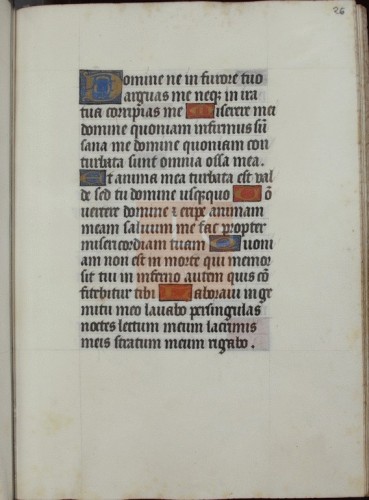 26
Domine ne in furore tuo
arguas me neqꝫ in ira
tua corripias me Miserere mei
domine quoniam infirmus sū
sana me domine quoniam con
turbata sunt omnia ossa mea.
Et anima mea turbata est val
de sed tu domine usqꝫquo Cō
vertere domine ⁊ eripe animam
meam salvum me fac propter
misericordiam tuam Quoni
am non est in morte qui memor
sit tui in inferno autem quis cō
fitebitur tibi Laboravi in ge
mitu meo lavabo per singulas
noctes lectum meum lacrimis
meis stratum meum rigabo.